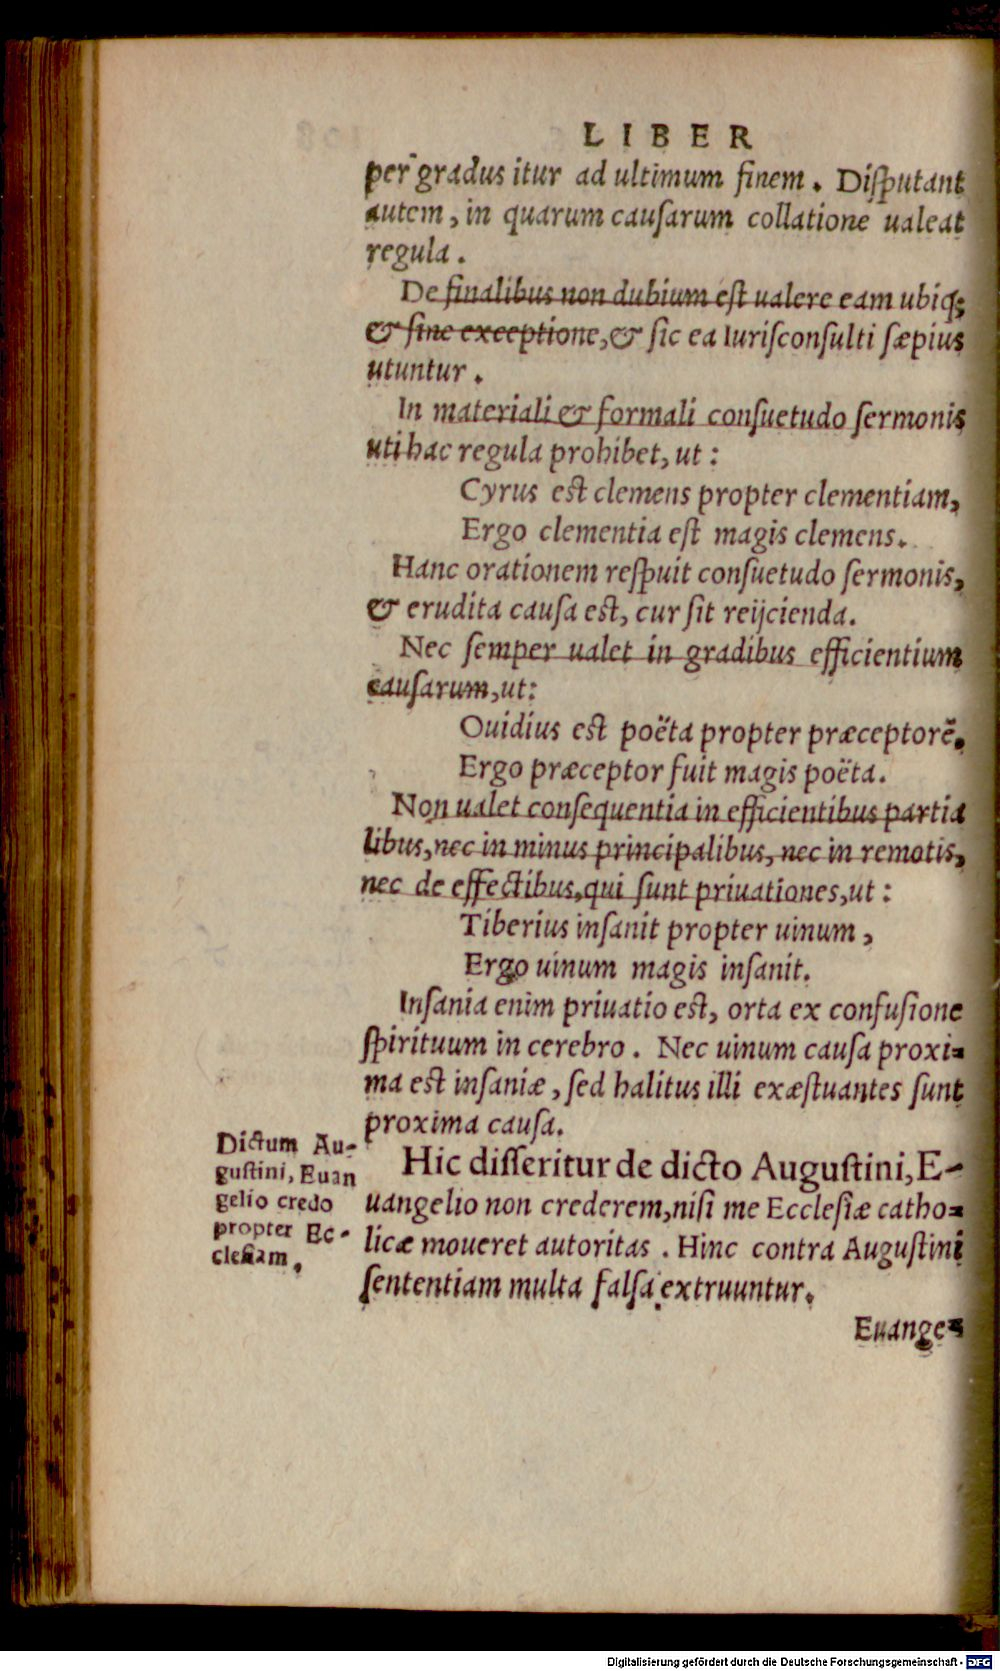 LIBER
per gradus itur ad ultimum finem. Diſputant
autem, in quarum cauſarum collatione ualeat
regula.
De finalibus non dubium eſt ualere eam ubiq;
& ſine exceptione, & ſic ea Iuriſconſulti ſæpius
utuntur.
In materiali & formali conſuetudo ſermonis
uti hac regula prohibet, ut:
Cyrus eſt clemens propter clementiam,
Ergo clementia eſt magis clemens.
Hanc orationem reſpuit conſuetudo ſermonis,
& erudita cauſa eſt, cur ſit reijcienda.
Nec ſemper ualet in gradibus efficientium
cauſarum, ut:
Ouidius eſt poëta propter præceptorē.
Ergo præceptor fuit magis poëta.
Non ualet conſequentia in efficientibus partia
libus, nec in minus principalibus, nec in remotis,
nec de effectibus, qui ſunt priuationes, ut:
Tiberius inſanit propter uinum,
Ergo uinum magis inſanit.
Inſania enim priuatio eſt, orta ex confuſione
ſpirituum in cerebro. Nec uinum cauſa proxi=
ma eſt inſaniæ, ſed halitus illi exæſtuantes ſunt
proxima cauſa.
Dictum Au-
guſtini, Euan
gelio credo
propter Ec-
cleſiam.
Hic diſſeritur de dicto Auguſtini, E-
uangelio non crederem, niſi me Eccleſiæ catho=
licæ moueret autoritas. Hinc contra Auguſtini
ſententiam multa falſa extruuntur.
Euange=
Digitalisierung gefördert durch die Deutsche Forschungsgemeinschaft - DFG